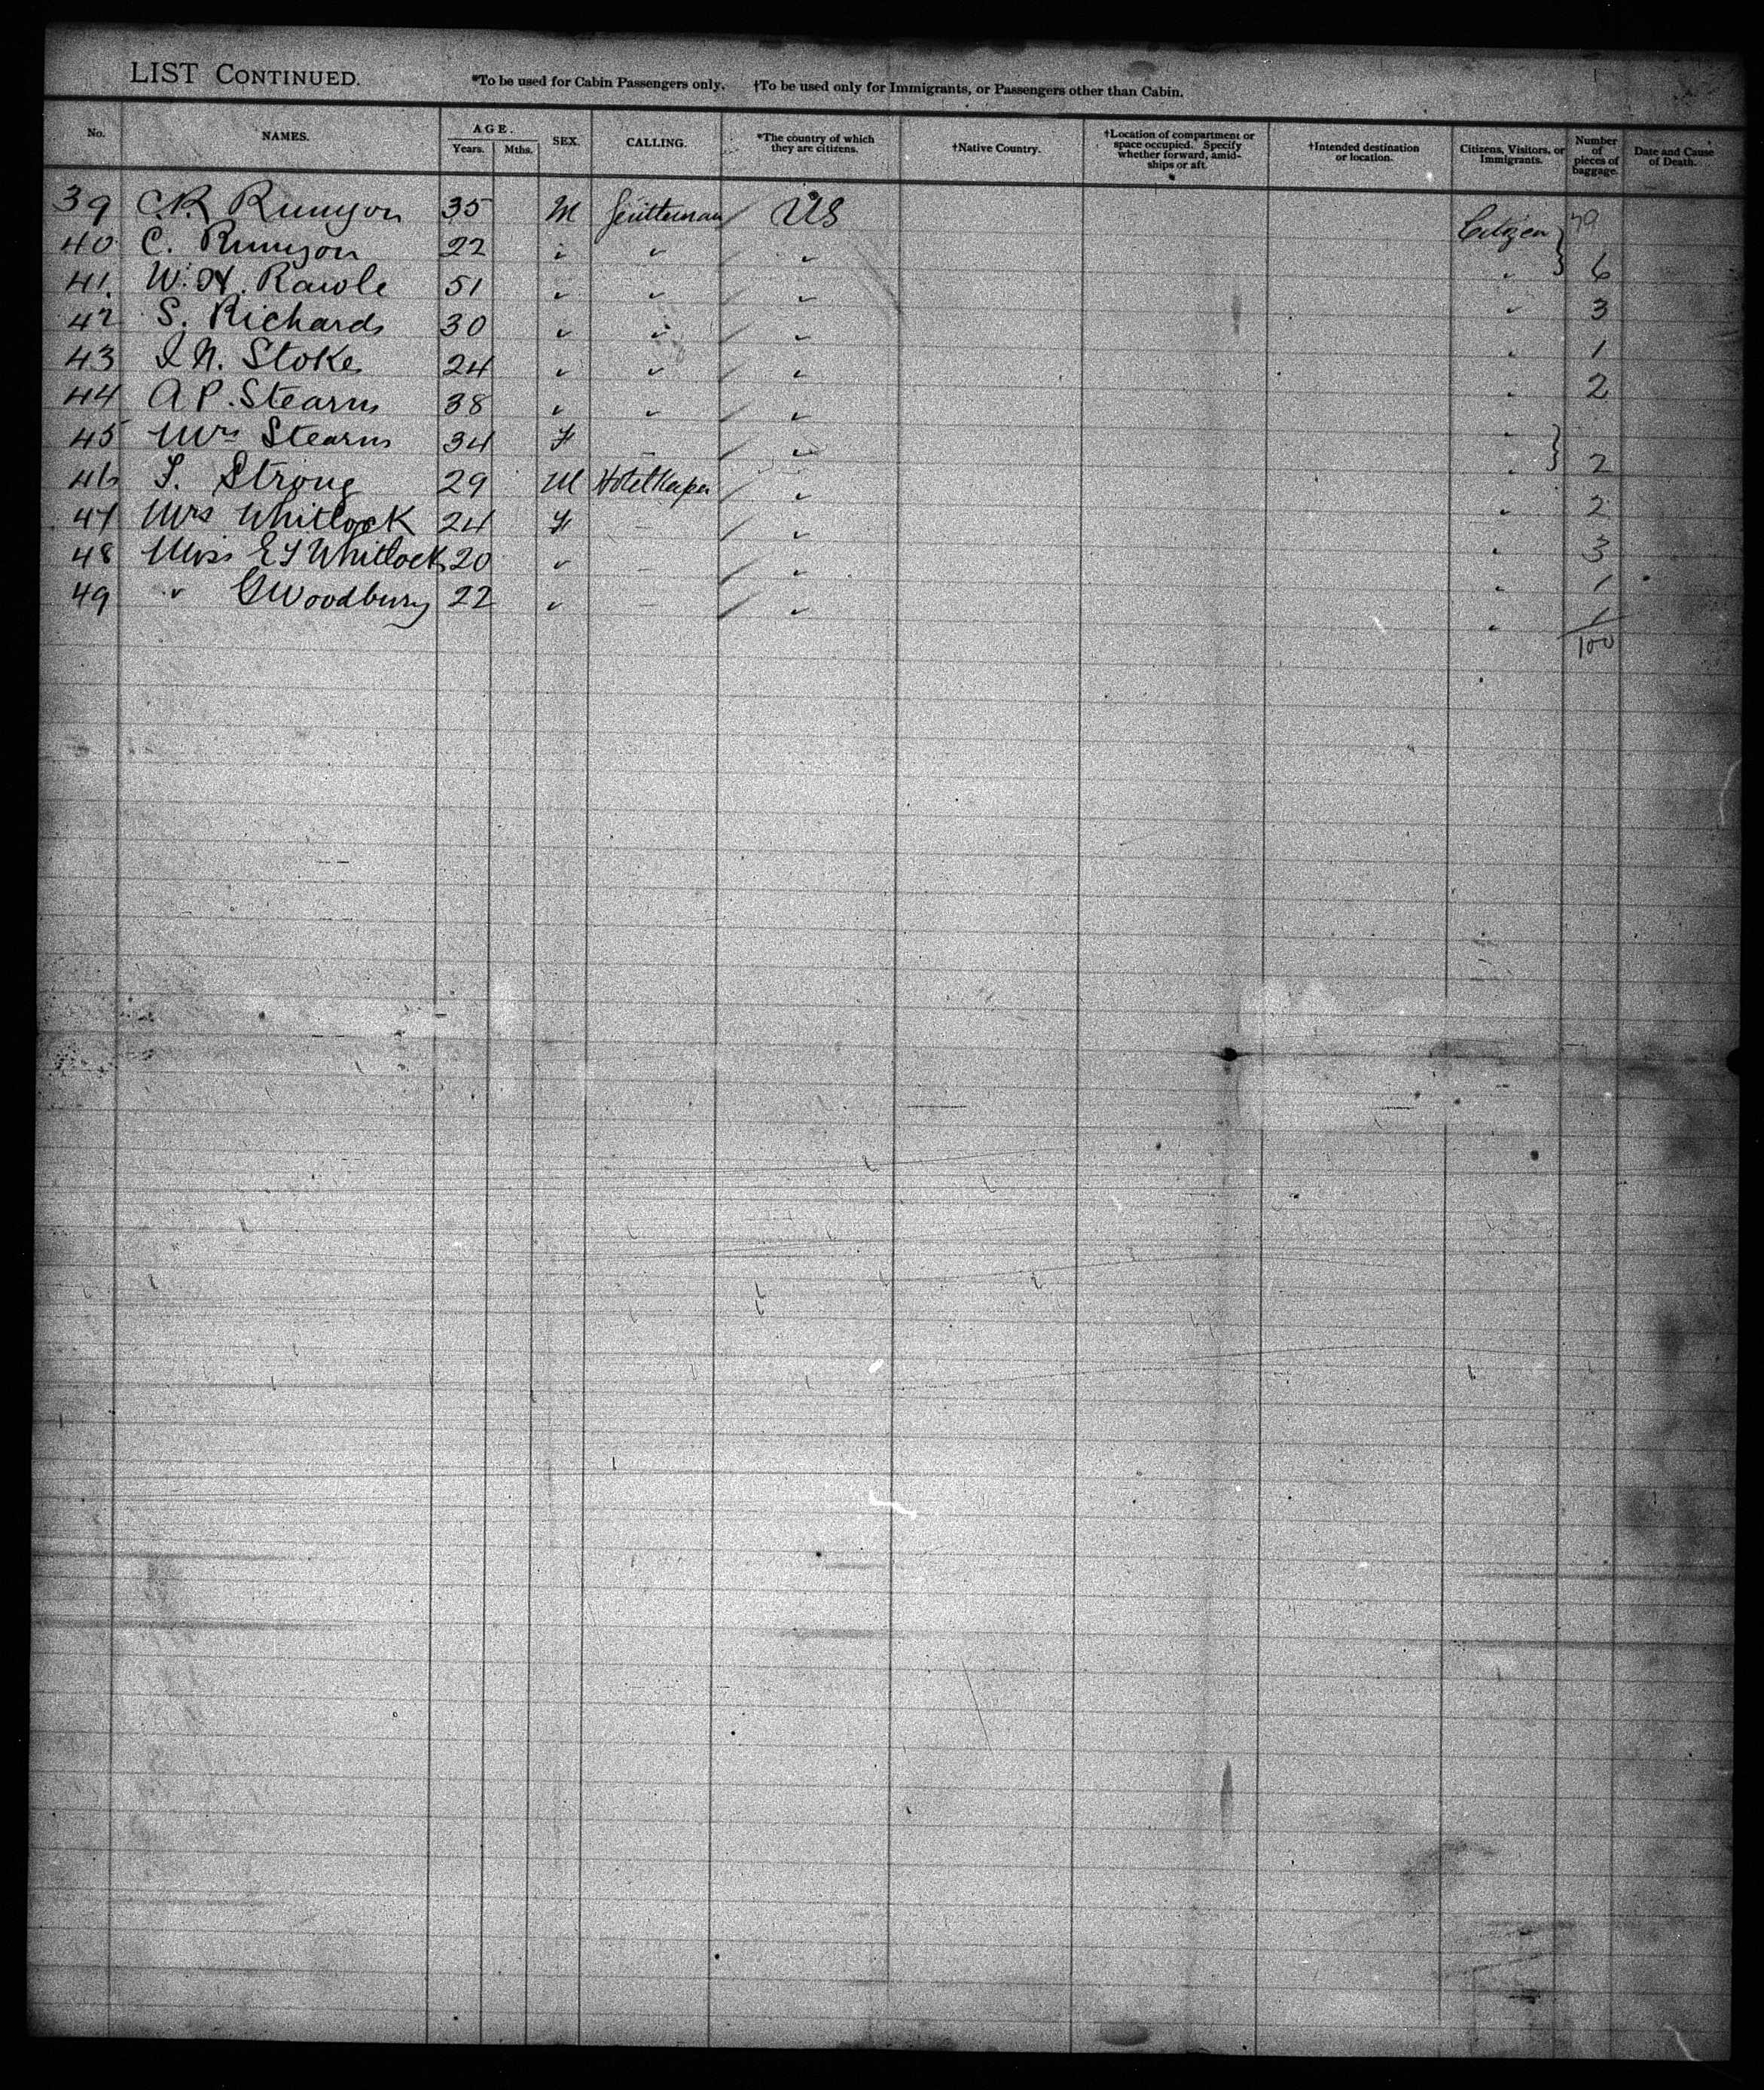 LIST CONTINUED. *To be used for Cabin Passengers only. †To be used only for Immigrants, or Passengers other than Cabin.
No. NAMES. AGE. Years. Mths. SEX. CALLING. *The country of which they are citizens. †Native Country. †Location of compartment or space occupied. Specify whether forward, amidships or aft. †Intended destination or location. Citizens, Visitors, or Immigrants. Number of pieces of baggage. Date and Cause of Death.
39 C.R. Runyon 35 M Gentleman US Citizen 79
40 C. Runyon 22 " " " " 6
41. W. H. Rawle 51 " " " " 3
42 S. Richards 30 " " " " 1
43 I N. Stoke 24 " " " " 2
44 A P. Stearns 38 " " " "
45 Mrs Stearns 34 F - " " 2
46 S. Strong 29 M Hotel Keeper " " 2
47 Mrs Whitlock 24 F - " " 3
48 Miss E S Whitlock 20 " - " " 1
49 " G Woodbury 22 " - " " 1
100